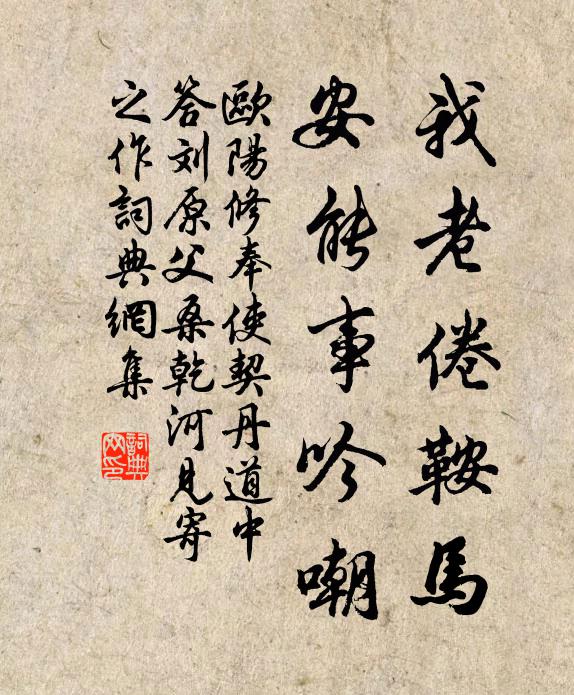 我老倦鞍馬
安能事吟嘲
歐陽修奉使契丹道中
答刘原父桑乾河見寄
之作詞典網集
詞典网印